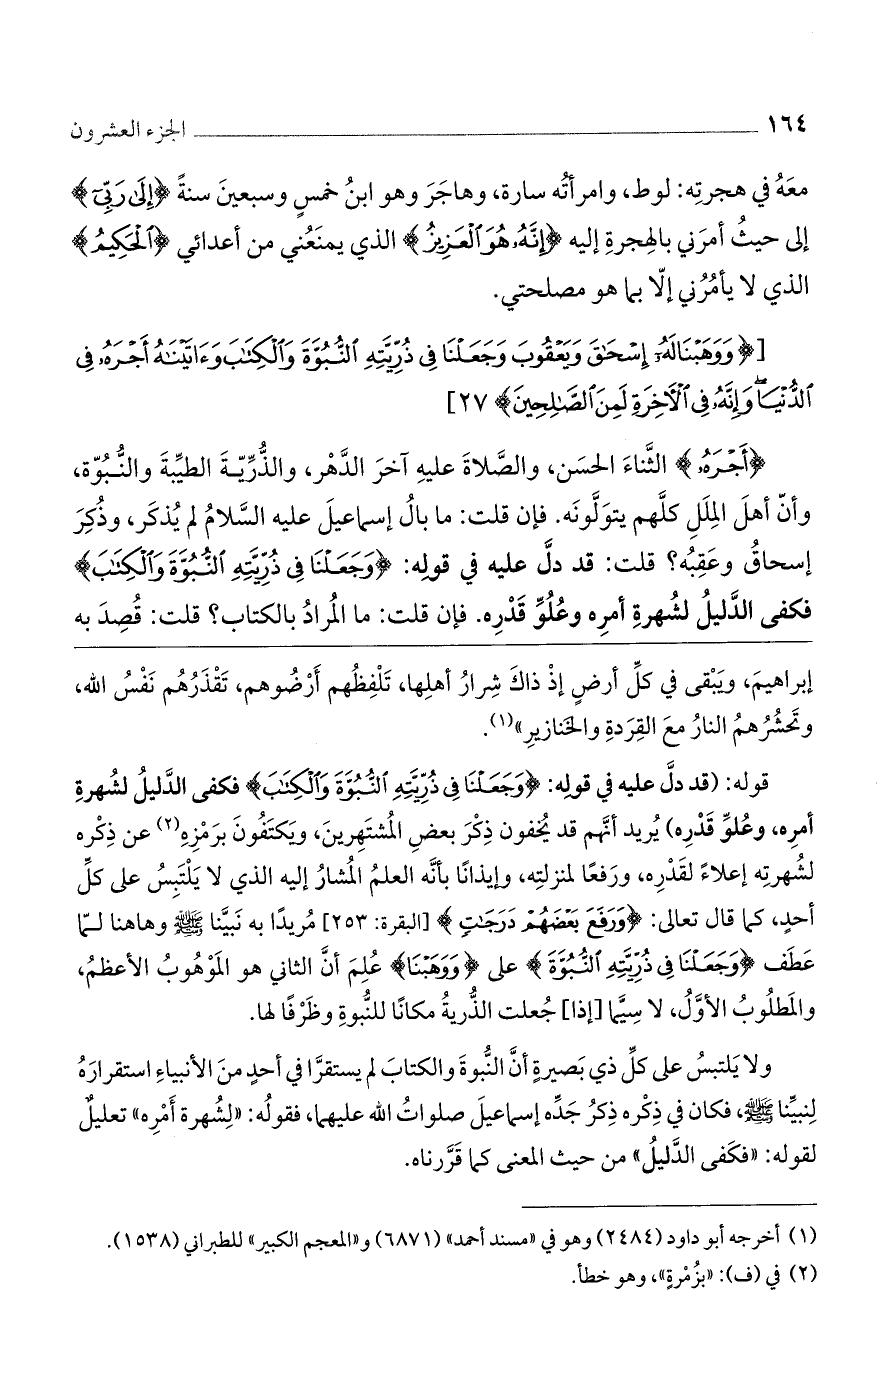 ١٦٤ الجزء العشرون
معَهُ في هجرتِه: لوط، وامرأتُه سارة، وهاجَرَ وهو ابنُ خمسٍ وسبعينَ سنةً ﴿إِلَىٰ رَبِّيٓ﴾
إلى حيثُ أمرَني بالهِجرةِ إليه ﴿إِنَّهُۥ هُوَ ٱلْعَزِيزُ﴾ الذي يمنَعُني من أعدائي ﴿ٱلْحَكِيمُ﴾
الذي لا يأمُرُني إلّا بما هو مصلحتي.
[﴿وَوَهَبْنَا لَهُۥٓ إِسْحَٰقَ وَيَعْقُوبَ وَجَعَلْنَا فِى ذُرِّيَّتِهِ ٱلنُّبُوَّةَ وَٱلْكِتَٰبَ وَءَاتَيْنَٰهُ أَجْرَهُۥ فِى
ٱلدُّنْيَا ۖ وَإِنَّهُۥ فِى ٱلْأَخِرَةِ لَمِنَ ٱلصَّٰلِحِينَ﴾ ٢٧]
﴿أَجْرَهُۥ﴾ الثَّناءَ الحسَن، والصَّلاةَ عليهِ آخرَ الدَّهْر، والذُّرِّيّةَ الطيِّبةَ والنُّبُوّة،
وأنّ أهلَ المِلَلِ كلَّهم يتولَّونَه. فإن قلت: ما بالُ إسماعيلَ عليه السَّلامُ لم يُذكَر، وذُكِرَ
إسحاقُ وعَقِبُه؟ قلت: قد دلَّ عليه في قولِه: ﴿وَجَعَلْنَا فِى ذُرِّيَّتِهِ ٱلنُّبُوَّةَ وَٱلْكِتَٰبَ﴾
فكفى الدَّليلُ لشُهرةِ أمرِه وعُلُوِّ قَدْرِه. فإن قلت: ما المُرادُ بالكتاب؟ قلت: قُصِدَ به
إبراهيمَ، ويَبْقى في كلِّ أرضٍ إذْ ذاكَ شِرارُ أهلِها، تَلْفِظُهم أَرْضُوهم، تَقْذَرُهُم نَفْسُ الله،
وتَحْشُرُهمُ النارُ معَ القِرَدةِ والخَنازيرِ»(١).
قوله: (قد دلَّ عليه في قولِه: ﴿وَجَعَلْنَا فِى ذُرِّيَّتِهِ ٱلنُّبُوَّةَ وَٱلْكِتَٰبَ﴾ فكفى الدَّليلُ لشُهرةِ
أمرِه، وعُلوِّ قَدْرِه) يُريد أنَّهم قد يُخفون ذِكْرَ بعضِ المُشتَهِرينَ، ويَكتَفُونَ برَمْزِهِ(٢) عن ذِكْره
لشُهرتِه إعلاءً لقَدْرِه، ورَفعًا لمنزلتِه، وإيذانًا بأنَّه العلمُ المُشارُ إليه الذي لا يَلْتَبِسُ على كلِّ
أحدٍ، كما قال تعالى: ﴿وَرَفَعَ بَعْضَهُمْ دَرَجَٰتٍ﴾ [البقرة: ٢٥٣] مُريدًا به نَبيَّنا ﷺ وهاهنا لـمّا
عَطَف ﴿وَجَعَلْنَا فِى ذُرِّيَّتِهِ ٱلنُّبُوَّةَ﴾ على ﴿وَوَهَبْنَا﴾ عُلِمَ أنَّ الثاني هو المَوْهُوبُ الأعظمُ،
والمَطلُوبُ الأوَّلُ، لا سِيَّما [إذا] جُعلت الذُّريةُ مكانًا للنُّبوةِ وظَرْفًا لها.
ولا يَلتبسُ على كلِّ ذي بَصيرةٍ أنَّ النُّبوةَ والكتابَ لم يستقرَّا في أحدٍ منَ الأنبياءِ استقرارَهُ
لِنبيِّنا ﷺ، فكان في ذِكْره ذِكرُ جَدِّه إسماعيلَ صلواتُ الله عليهما، فقولُه: «لِشُهرة أَمْرِه» تعليلٌ
لقوله: «فكَفى الدَّليلُ» من حيث المعنى كما قَرَّرناه.
(١) أخرجه أبو داود (٢٤٨٤) وهو في «مسند أحمد» (٦٨٧١) و«المعجم الكبير» للطبراني (١٥٣٨).
(٢) في (ف): «بزُمْرةٍ»، وهو خطأ.